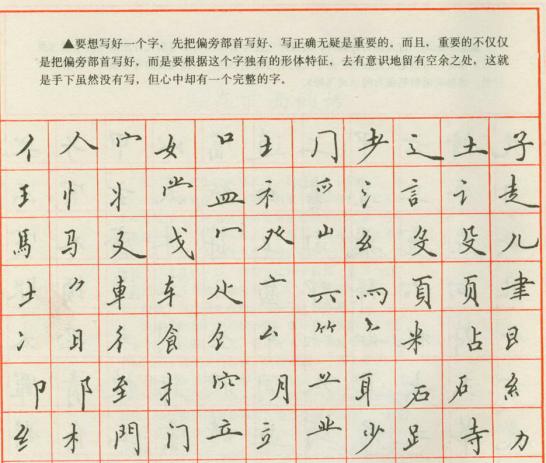 ▲要想写好一个字，先把偏旁部首写好、写正确无疑是重要的。而且，重要的不仅仅
是把偏旁部首写好，而是要根据这个字独有的形体特征，去有意识地留有空余之处，这就
是手下虽然没有写，但心中却有一个完整的字。
亻 人 宀 女 口 土 冂 耂 辶 土 子
王 忄 丬 龸 皿 礻 覀 氵 言 讠 走
馬 马 廴 戈 冖 癶 山 幺 殳 儿
士 車 车 火 亠 罒 頁 页 聿
冫 日 彳 食 厶 米 占 日
卩 阝 至 才 穴 月 耳 石 石 糹
纟 木 門 门 立 业 少 足 寺 力